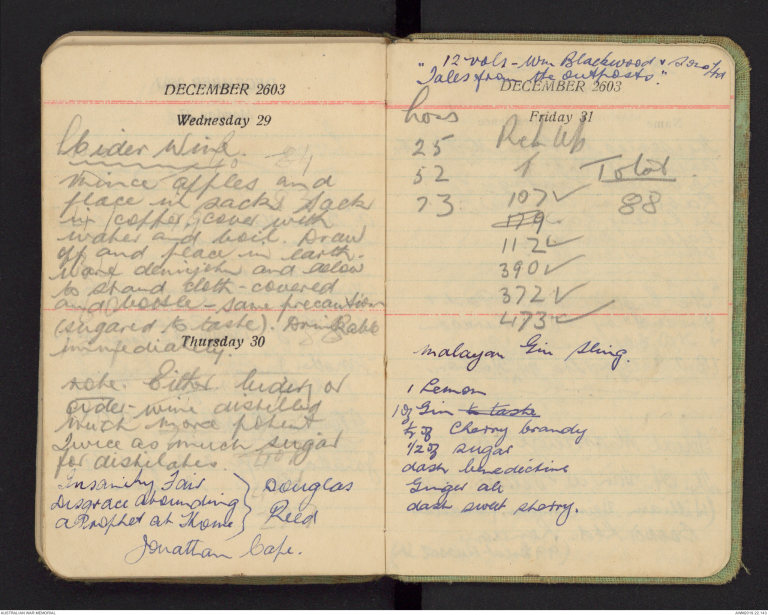 DECEMBER 2603
Wednesday 29
Cider Wine.
mince apples and
place in sacks. Sack
in copper, cover with
water and boil. Draw
off and place in earth-
ware demijohn and allow
to stand cloth-covered
and bottle - same precaution
(sugared to taste). Drinkable
immediately.
Thursday 30
note. Either cider, or
cider-wine distilled
much more potent
Twice as much sugar
for distilates.
Insanity Fair
Disgrace abounding
a Prophet at Home
Douglas
Reed
Jonathan Cape.
" 12-vols - Wm Blackwood & Sons Ltd
Tales from the outposts."
DECEMBER 2603
Friday 31
hors Pick Up
25 1 Total
52 107 ✓ 88
73 179
112 ✓
390 ✓
372 ✓
473 ✓
Malayan Gin Sling.
1 Lemon
1 oz Gin to taste
oz Cherry brandy
1/2 oz sugar
dash benedictine
Ginger ale
dash sweet sherry.
AUSTRALIAN WAR MEMORIAL